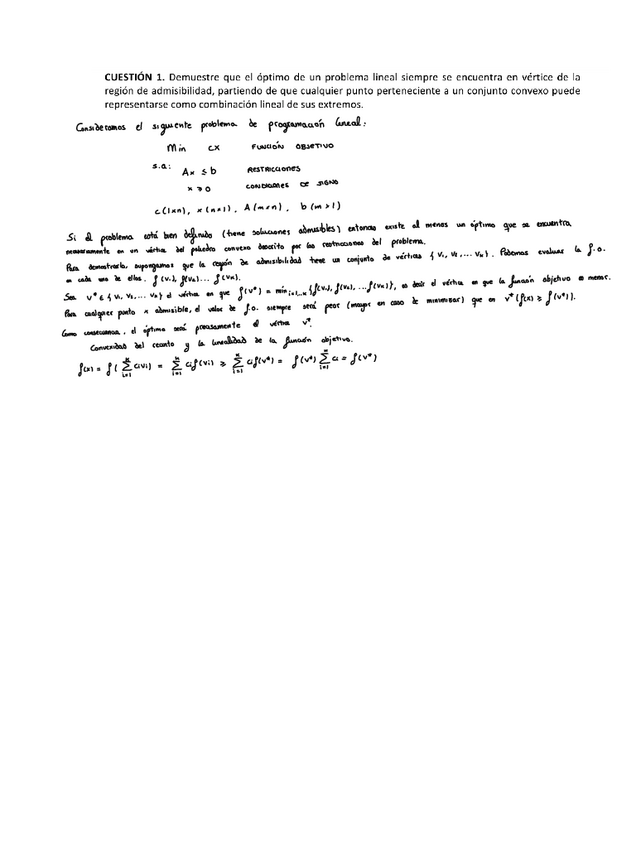 CUESTIÓN 1. Demuestre que el óptimo de un problema lineal siempre se encuentra en vértice de la
región de admisibilidad, partiendo de que cualquier punto perteneciente a un conjunto convexo puede
representarse como combinación lineal de sus extremos.
Consideramos el siguiente problema de programación lineal:
Min cx FUNCIÓN OBJETIVO
s.a: Ax ≤ b RESTRICCIONES
x ≥ 0 CONDICIONES DE SIGNO
c(1xn), x(nx1), A(mxn), b(mx1)
Si el problema está bien definido (tiene soluciones admisibles) entonces existe al menos un óptimo que se encuentra,
necesariamente en un vértice del poliedro convexo descrito por las restricciones del problema.
Para demostrarlo, supongamos que la región de admisibilidad tiene un conjunto de vértices {V₁, V₂, ... Vₙ}. Podemos evaluar la f.o.
en cada uno de ellos. f(V₁), f(V₂)... f(Vₙ).
Sea V* ∈ {V₁, V₂, ... Vₙ} el vértice en que f(V*) = min {f(V₁), f(V₂), ... f(Vₙ)}, es decir el vértice en que la función objetivo es menor.
Para cualquier punto x admisible, el valor de f.o. siempre será peor (mayor en caso de minimizar) que en V* (f(x) ≥ f(V*)).
Como consecuencia, el óptimo será precisamente el vértice V*.
Convexidad del recinto y la linealidad de la función objetivo.
f(x) = f(∑ᵢ₌₁ⁿ aᵢvᵢ) = ∑ᵢ₌₁ⁿ aᵢf(vᵢ) ≥ ∑ᵢ₌₁ⁿ aᵢf(v*) = f(v*) ∑ᵢ₌₁ⁿ aᵢ = f(v*)